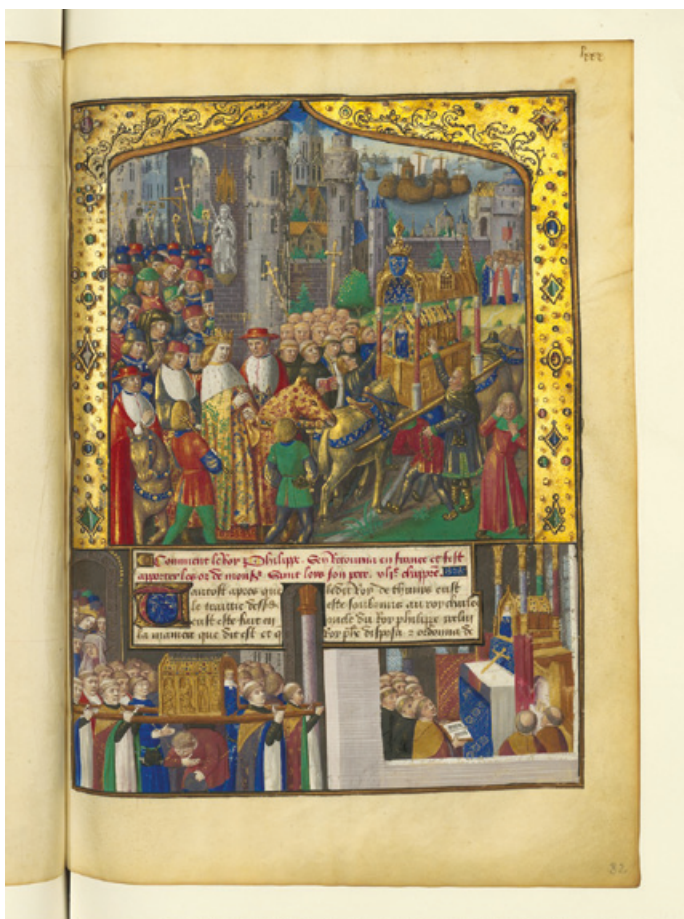 Comment le Roy Phelippe. Sen Retourna en france et feist
apporter les os de mons&. Saint loys son pere. chappre
Tantost apres que ledit Roy de thunes eust
le traittie dessus este au roy charles
eust este fait en du Roy philippe
la maniere que dit est et Roy phe disposa & ordonna de
82